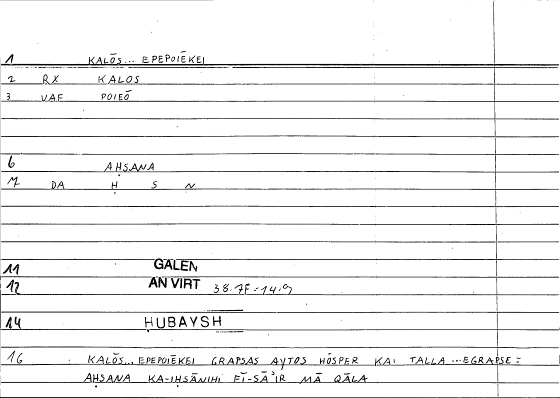 1 KALŌS... EPEPOIĒKEI
2 RX KALOS
3 VAF POIEŌ
6 AḤSANA
7 DA Ḥ S N
11 GALEN
12 AN VIRT 38.7F=14.9
14 ḤUBAYSH
16 KALŌS...EPEPOIĒKEI GRAPSAS AYTOS HŌSPER KAI TALLA ...EGRAPSE =
AḤSANA KA-IḤSĀNIHI FĪ-SĀʾIR MĀ QĀLA